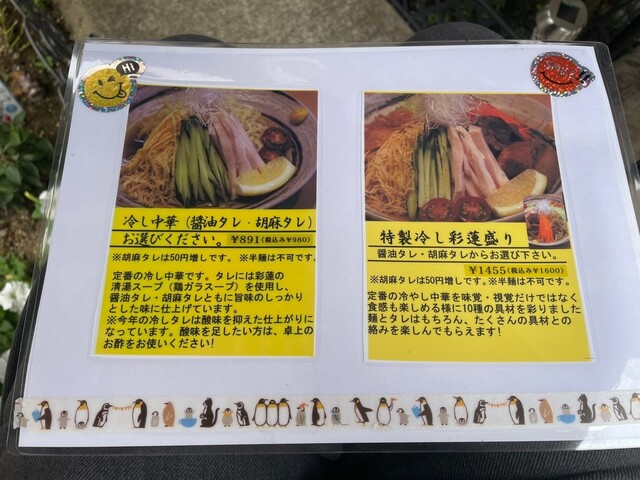 HI
冷し中華（醤油タレ・胡麻タレ）
お選びください。 ¥891(税込み¥980)
※胡麻タレは50円増しです。 ※半麺は不可です。
定番の冷し中華です。タレには彩蓮の
清湯スープ（鶏ガラスープ）を使用し、
醤油タレ・胡麻タレともに旨味のしっかり
とした味に仕上げています。
※今年の冷しタレは酸味を抑えた仕上がりに
なっています。酸味を足したい方は、卓上の
お酢をお使いください!
特製冷し彩蓮盛り
醤油タレ・胡麻タレからお選び下さい。
¥1455(税込み¥1600)
※胡麻タレは50円増しです。※半麺は不可です。
定番の冷やし中華を味覚・視覚だけではなく
食感も楽しめる様に10種の具材を彩りました
麺とタレはもちろん、たくさんの具材との
絡みを楽しんでもらえます!